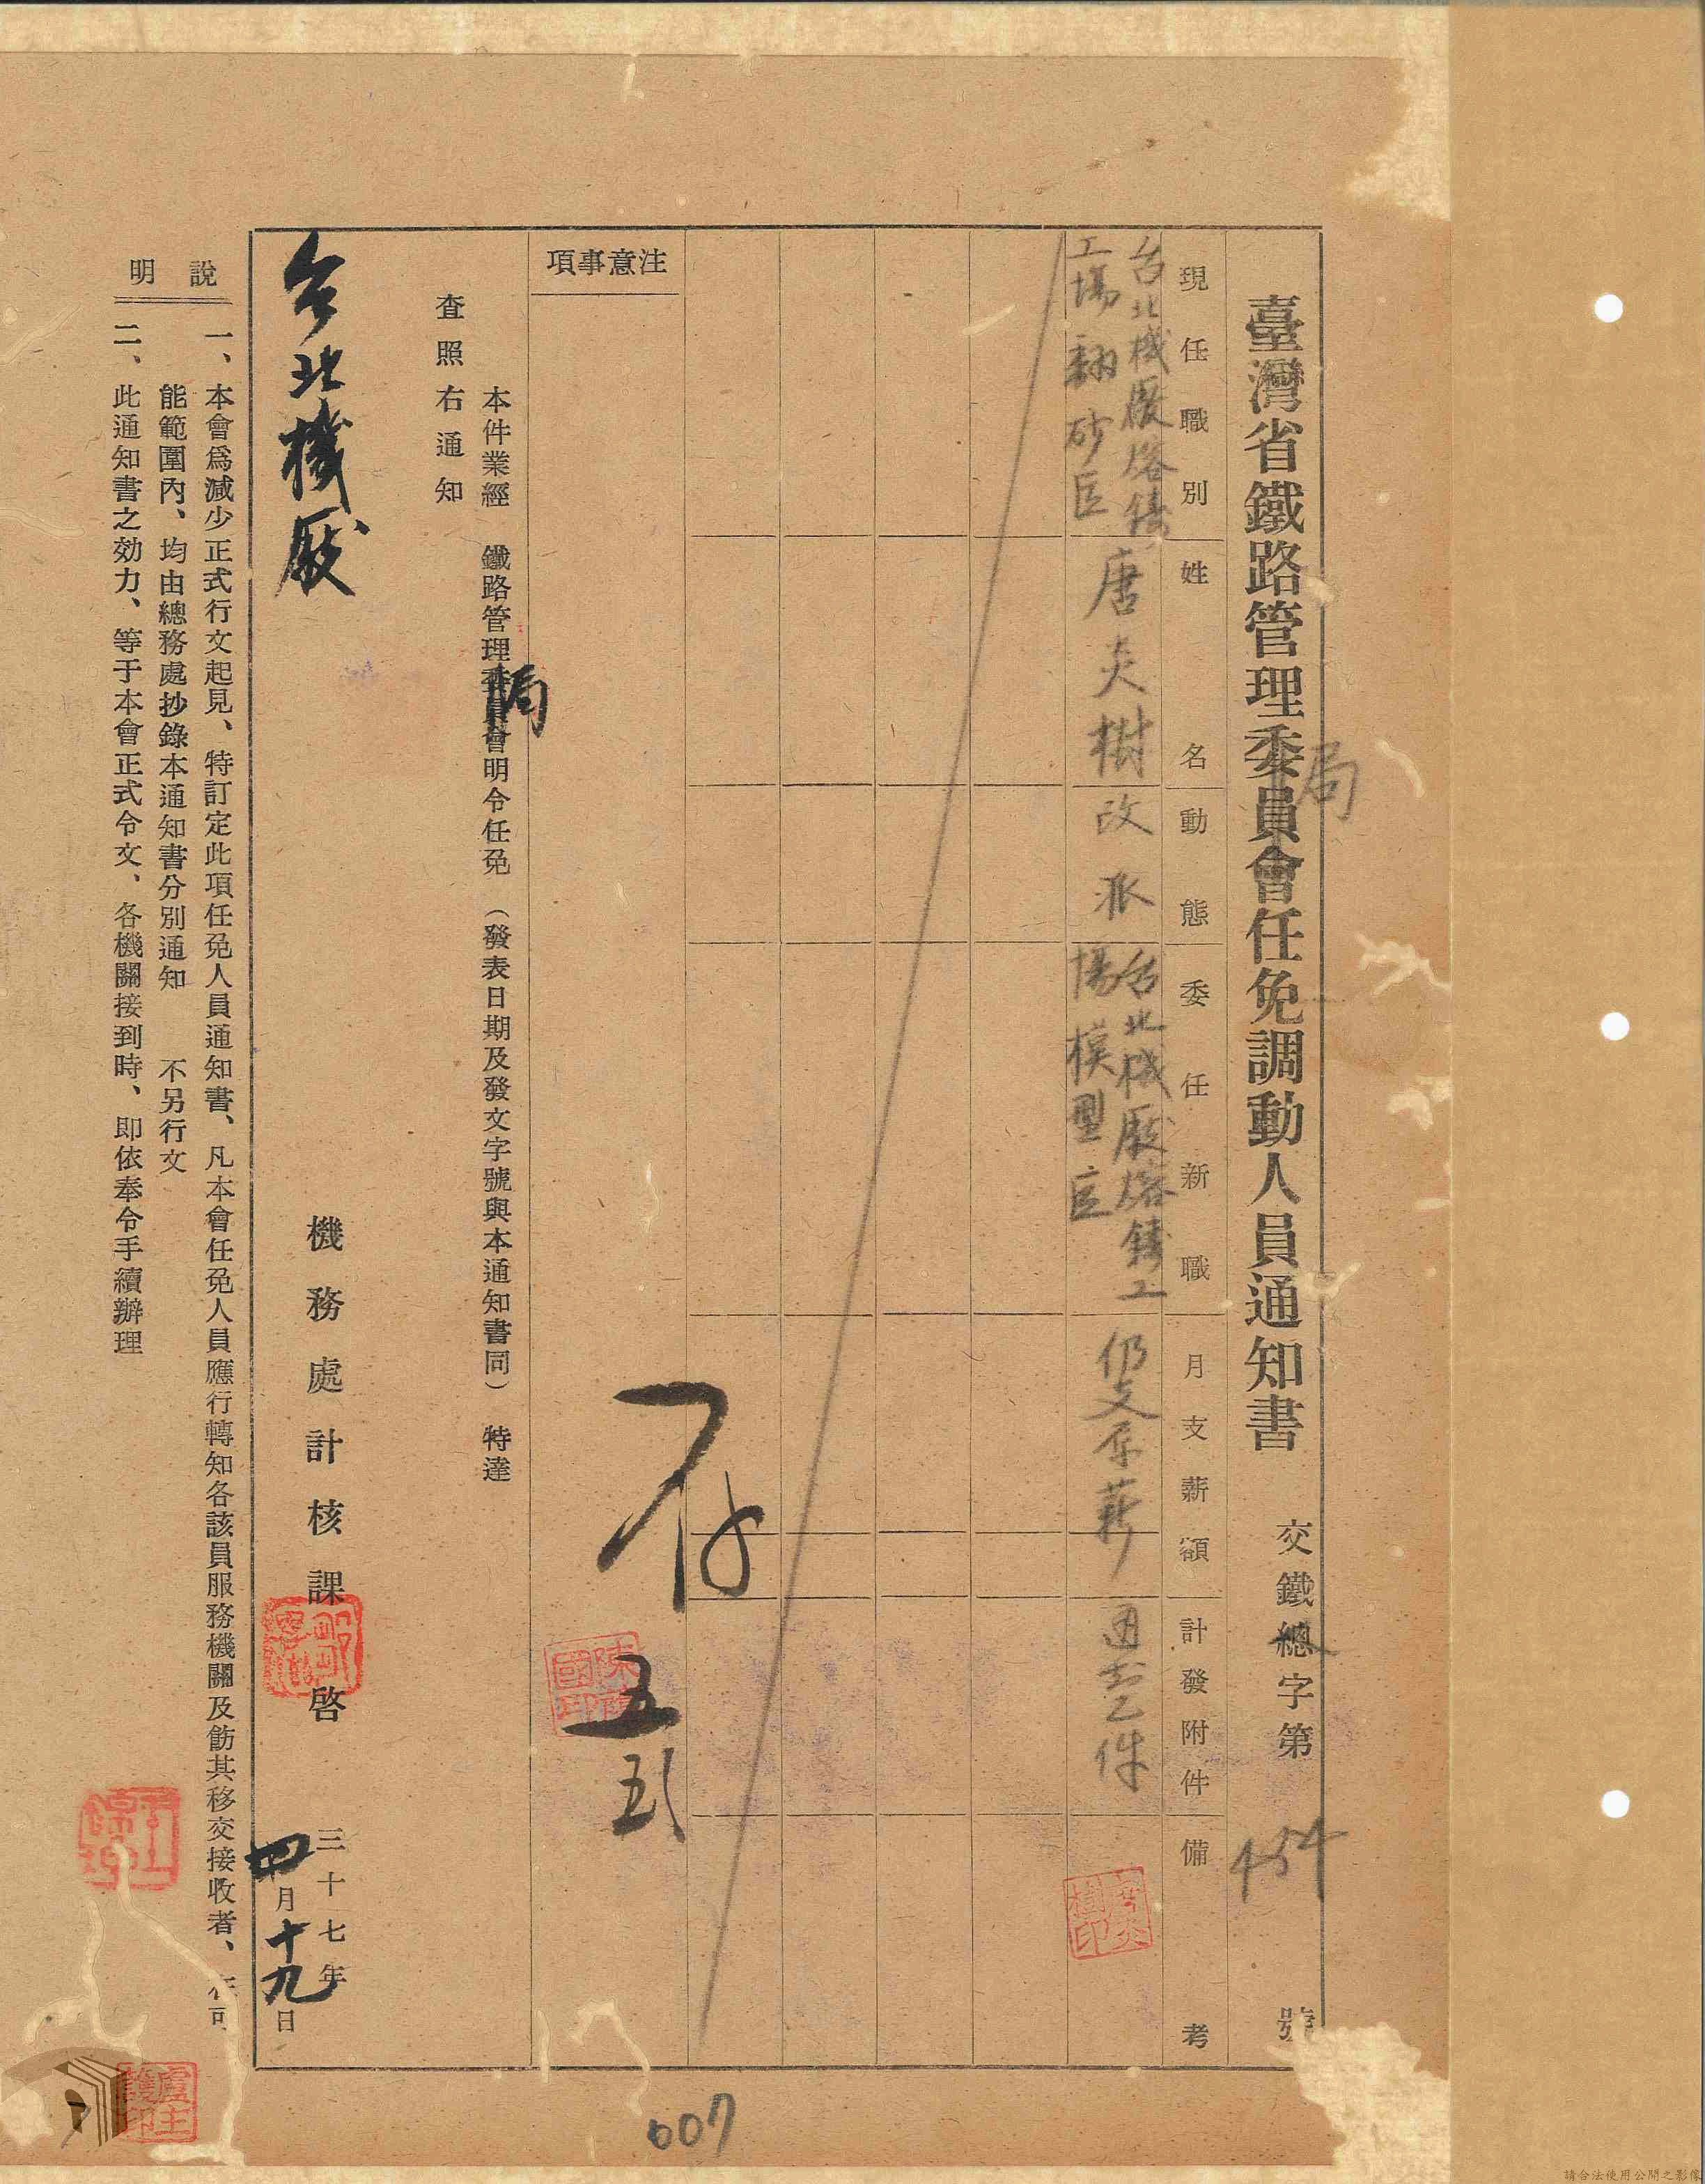 臺灣省鐵路管理委員會任免調動人員通知書
局
交鐵總字第454號
現任職別
姓名
動態
委任新職
月支薪額
計發附件
備考
台北機廠熔鑄
工場翻砂匠
唐炎樹
改派
台北機廠熔鑄工
場模型匠
仍支原薪
通知乙件
注意事項
存
五
本件業經 鐵路管理委員會明令任免(發表日期及發文字號與本通知書同) 特達
局
查照右通知
台北機廠
機務處計核課 啓
三十七年
四月十九日
說明
一、本會爲減少正式行文起見、特訂定此項任免人員通知書、凡本會任免人員應行轉知各該員服務機關及飭其移交接收者、在可
能範圍內、均由總務處抄錄本通知書分別通知 不另行文
二、此通知書之効力、等于本會正式令文、各機關接到時、即依奉令手續辦理
007
請合法使用公開之影像